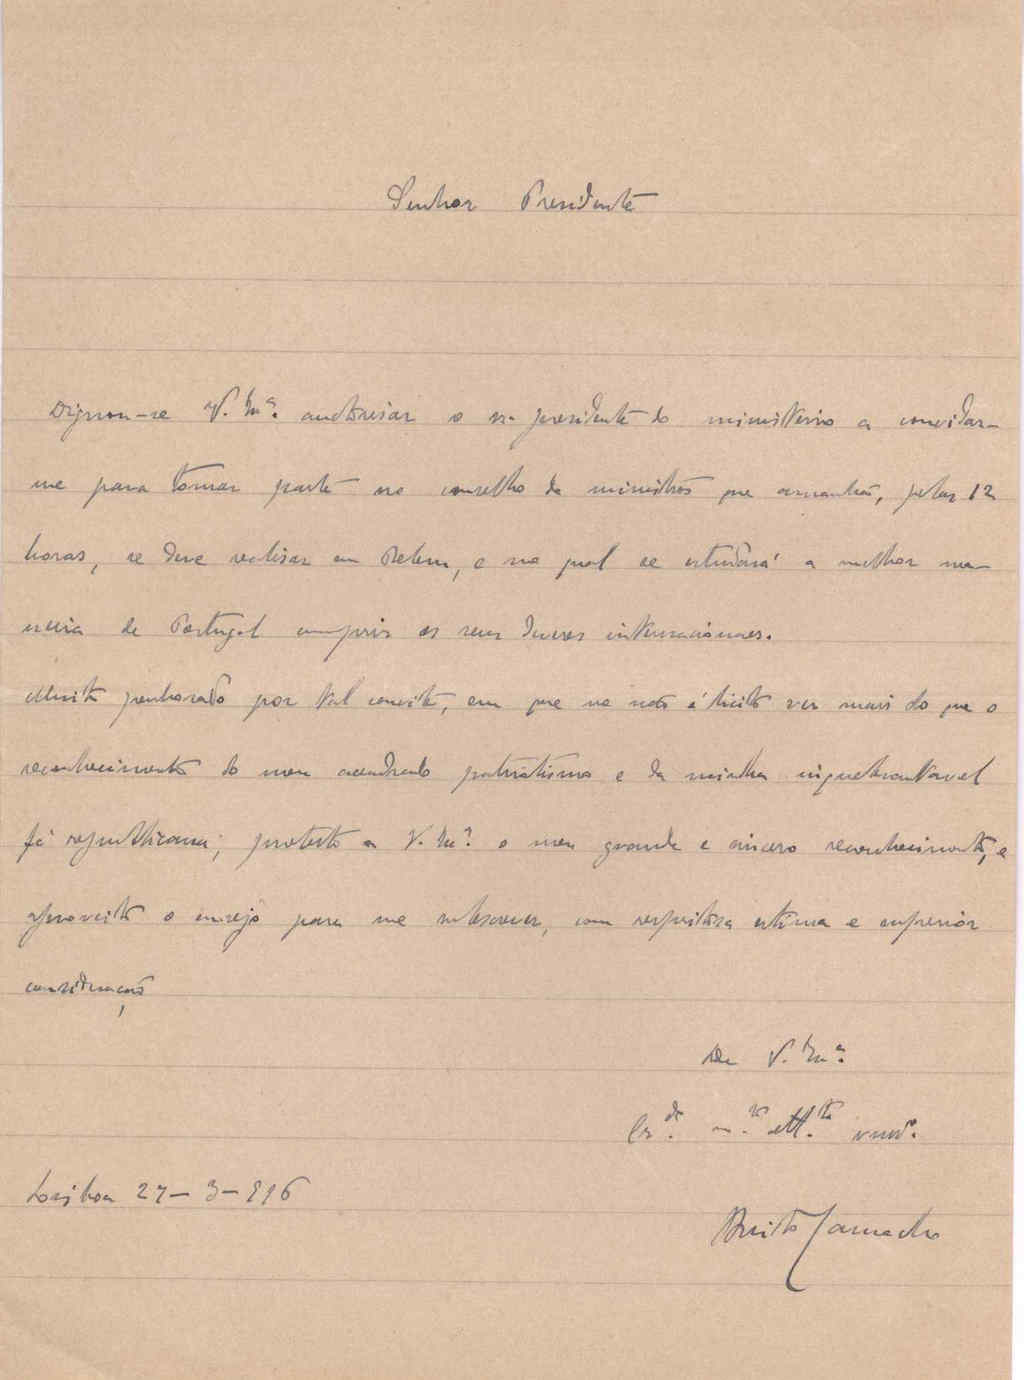 Senhor Presidente
Dignou-se V. Exª. auctorisar o sr. presidente do ministerio a convidar-
me para tomar parte no conselho de ministros que amanhã, pelas 12
horas, se deve realisar em Belem, e no qual se estudará a melhor ma-
neira de Portugal cumprir os seus deveres internacionaes.
Muito penhorado por tal convite, em que me não é licito ver mais do que o
reconhecimento do meu acendrado patriotismo e da minha inquebrantavel
fé republicana; protesto a V. Exª. o meu grande e sincero reconhecimento, e
aproveito o ensejo para me subscrever, com respeitosa estima e superior
consideração
De V. Exª.
Crdº. mtº. Attº. venrº.
Lisboa 27-3-916
Brito Camacho